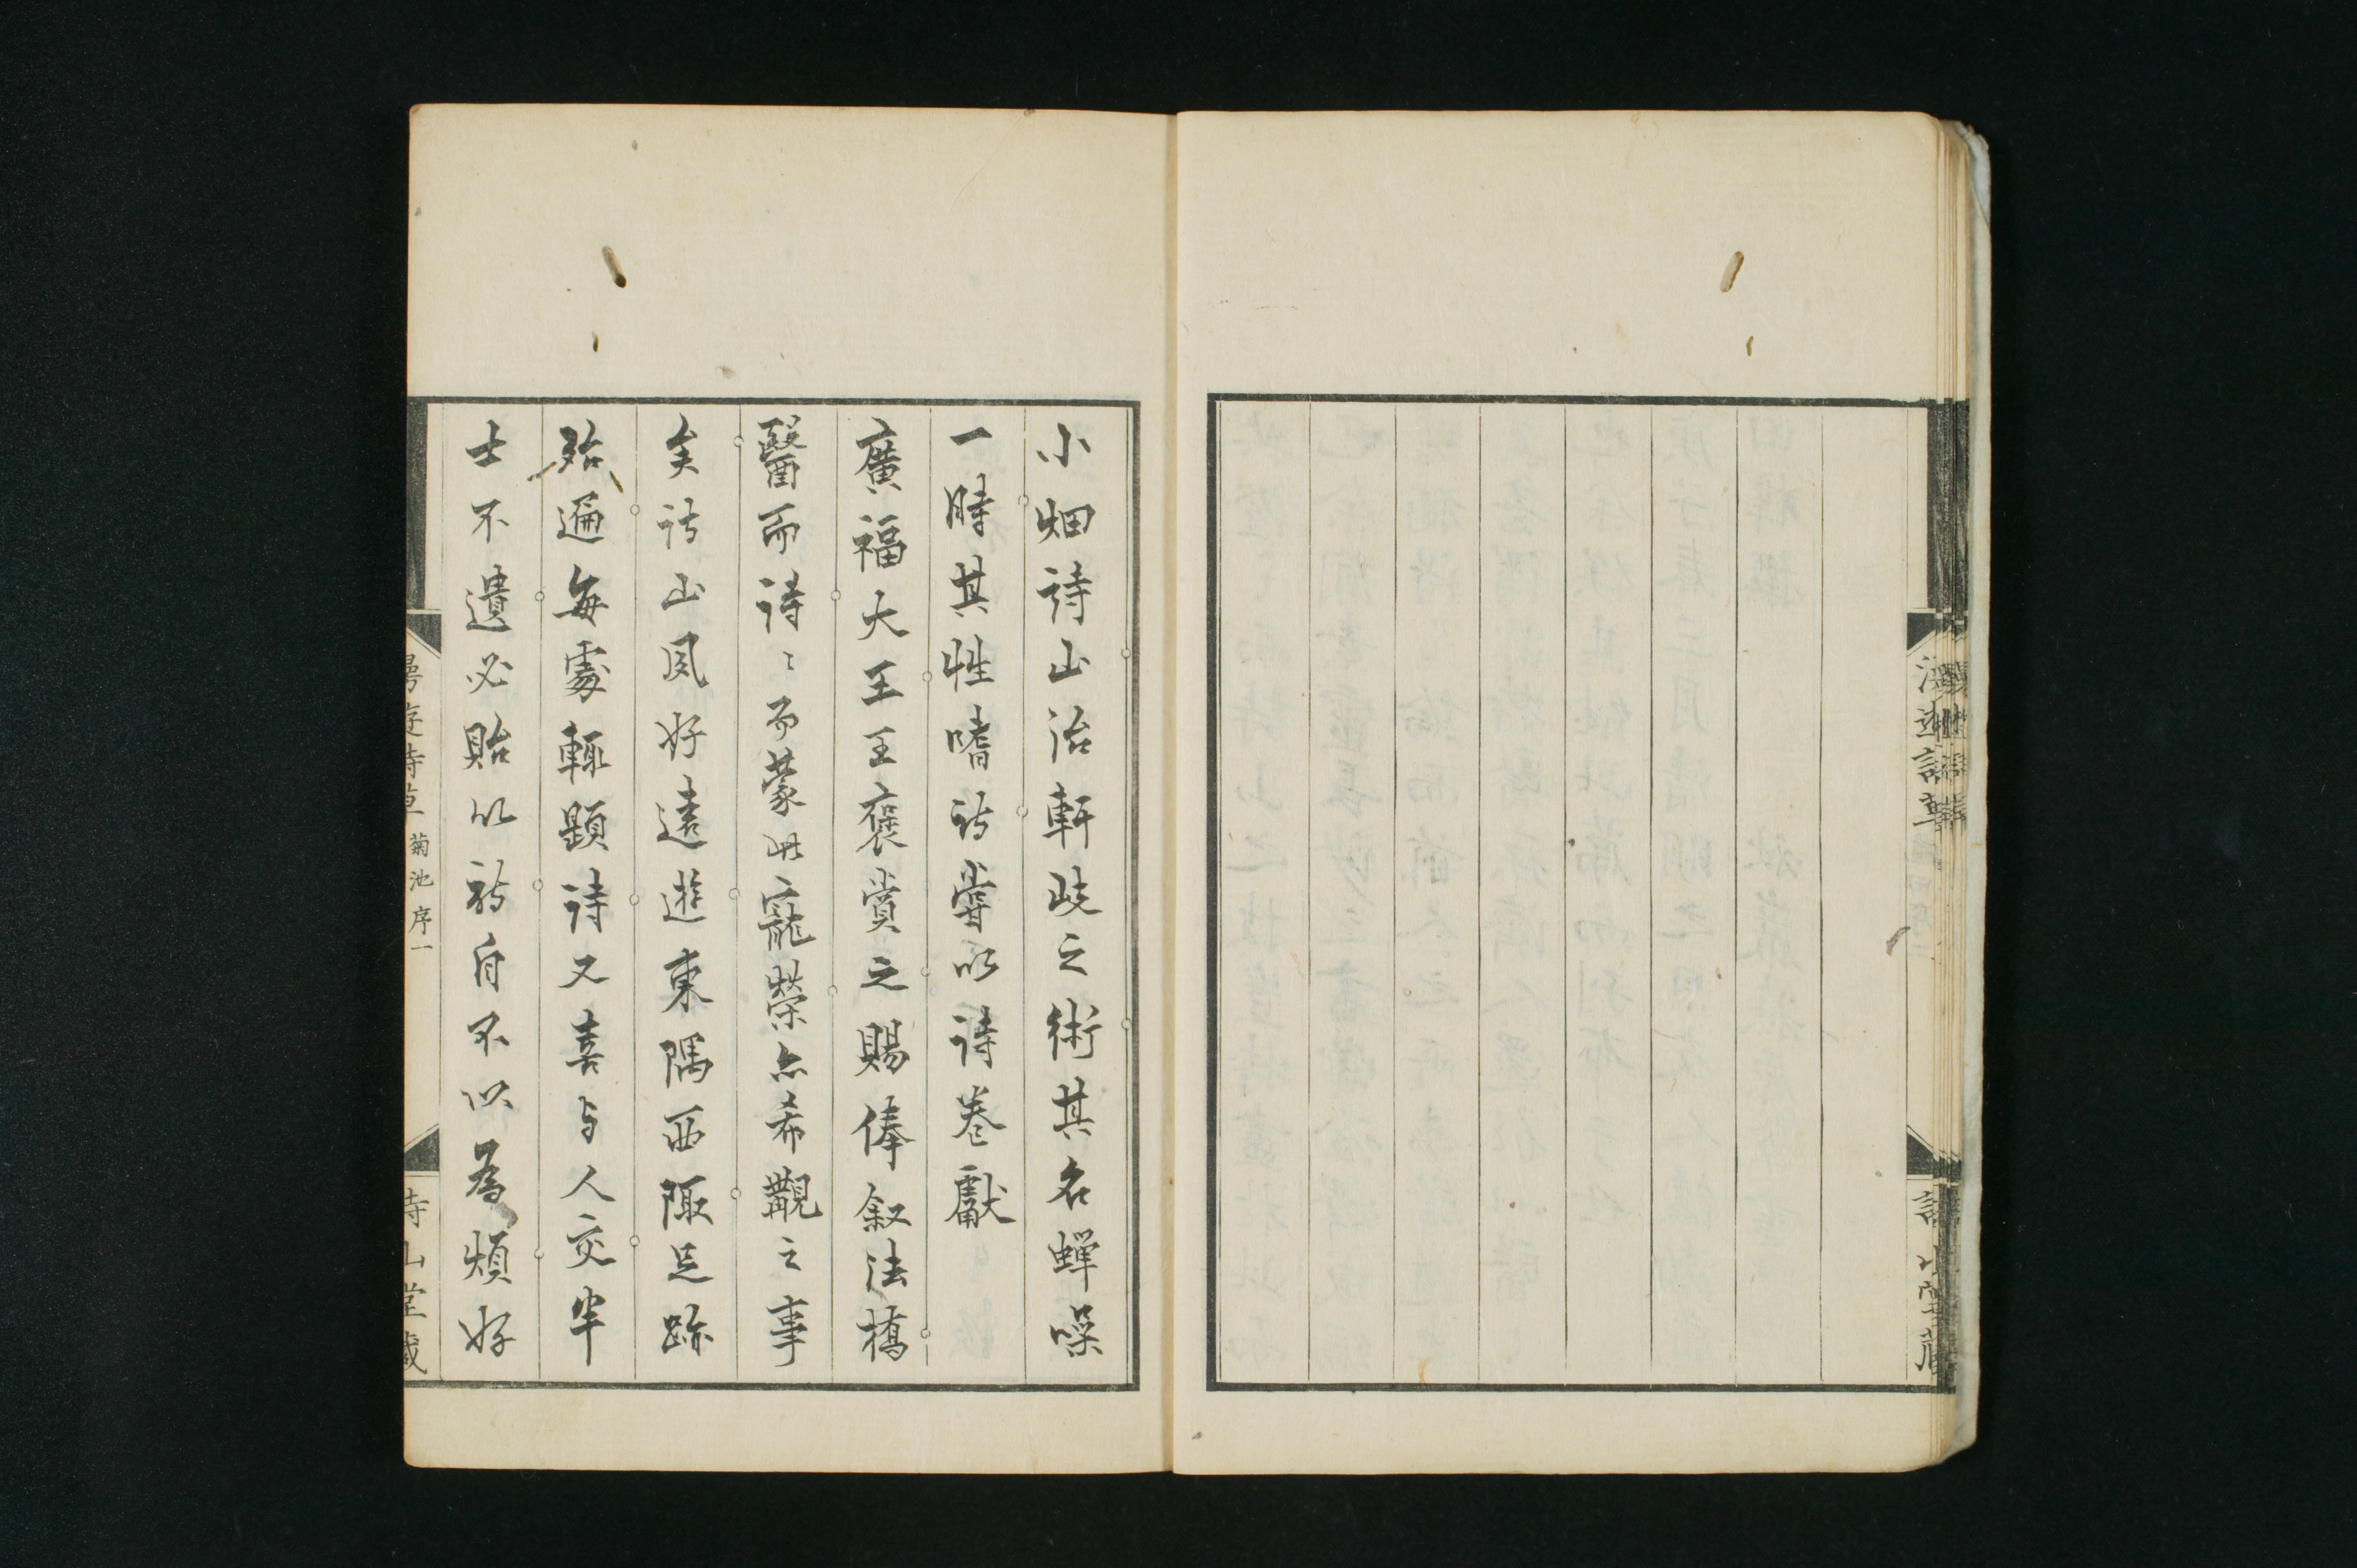 小畑詩山治軒岐之術其名蟬噪
一時其性嗜詩嘗以詩卷獻
廣福大王王褒賞之賜俸叙法橋
醫而詩〻而蒙此寵榮亦希覯之事
矣詩山夙好遠遊東隅西陬足跡
殆遍每處輒題詩又喜与人交半
士不遺必貽以詩自不以為煩好
漫遊詩草 菊池序一
詩山堂藏